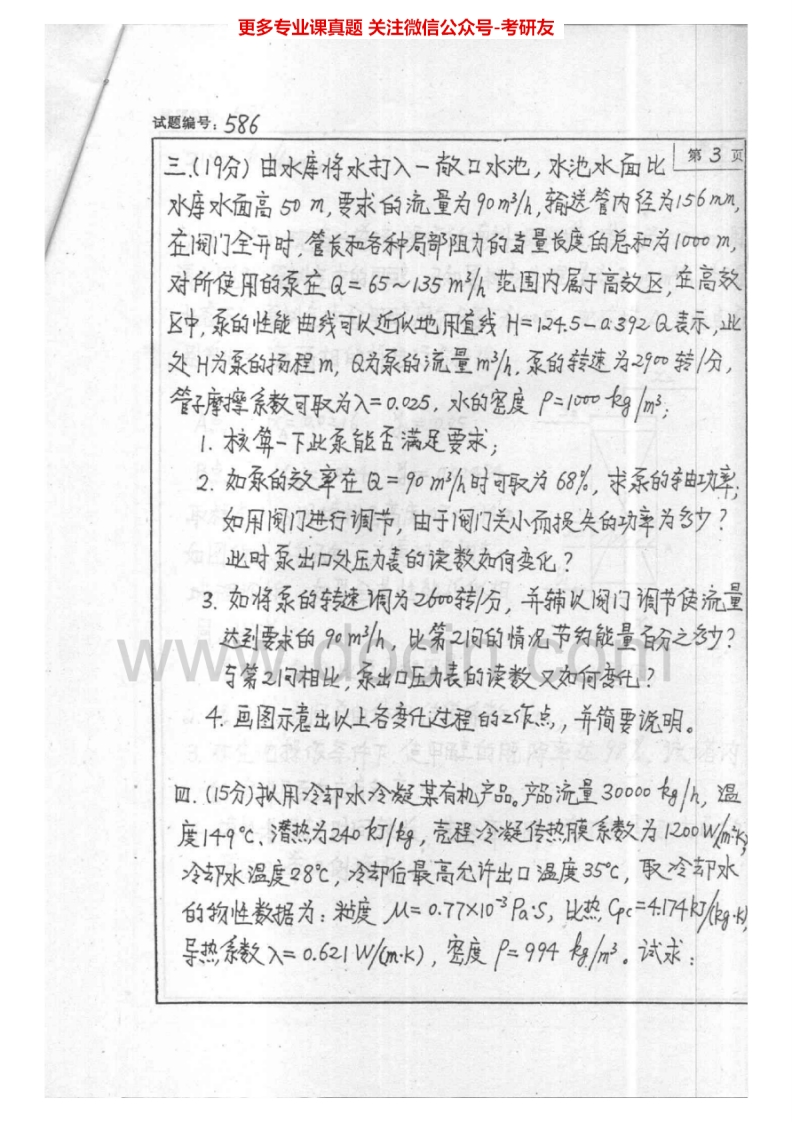 更多专业课真题 关注微信公众号-考研友
试题编号：586
第 3 页
三.(19分) 由水库将水打入一敞口水池，水池水面比
水库水面高50m，要求的流量为90m³/h，输送管内径为156mm，
在阀门全开时，管长和各种局部阻力的当量长度的总和为1000m，
对所使用的泵在Q=65～135m³/h范围内属于高效区，在高效
区中，泵的性能曲线可以近似地用直线H=124.5-0.392Q表示，此
处H为泵的扬程m，Q为泵的流量m³/h，泵的转速为2900转/分，
管子摩擦系数可取为λ=0.025，水的密度ρ=1000kg/m³；
1. 核算一下此泵能否满足要求；
2. 如泵的效率在Q=90m³/h时可取为68%，求泵的轴功率；
如用阀门进行调节，由于阀门关小而损失的功率为多少？
此时泵出口处压力表的读数如何变化？
3. 如将泵的转速调为2600转/分，并辅以阀门调节使流量
达到要求的90m³/h，比第2问的情况节约能量百分之多少？
与第2问相比，泵出口压力表的读数又如何变化？
4. 画图示意出以上各变化过程的工作点，并简要说明。
www.docin.com
四.(15分)拟用冷却水冷凝某有机产品。产品流量30000kg/h，温
度149℃、潜热为240kJ/kg，壳程冷凝传热膜系数为1200W/m²·K；
冷却水温度28℃，冷却后最高允许出口温度35℃，取冷却水
的物性数据为：粘度 μ=0.77×10⁻³Pa·S，比热Cpc=4.174kJ/(kg·K)，
导热系数λ=0.621W/(m·K)，密度ρ=994kg/m³。试求：